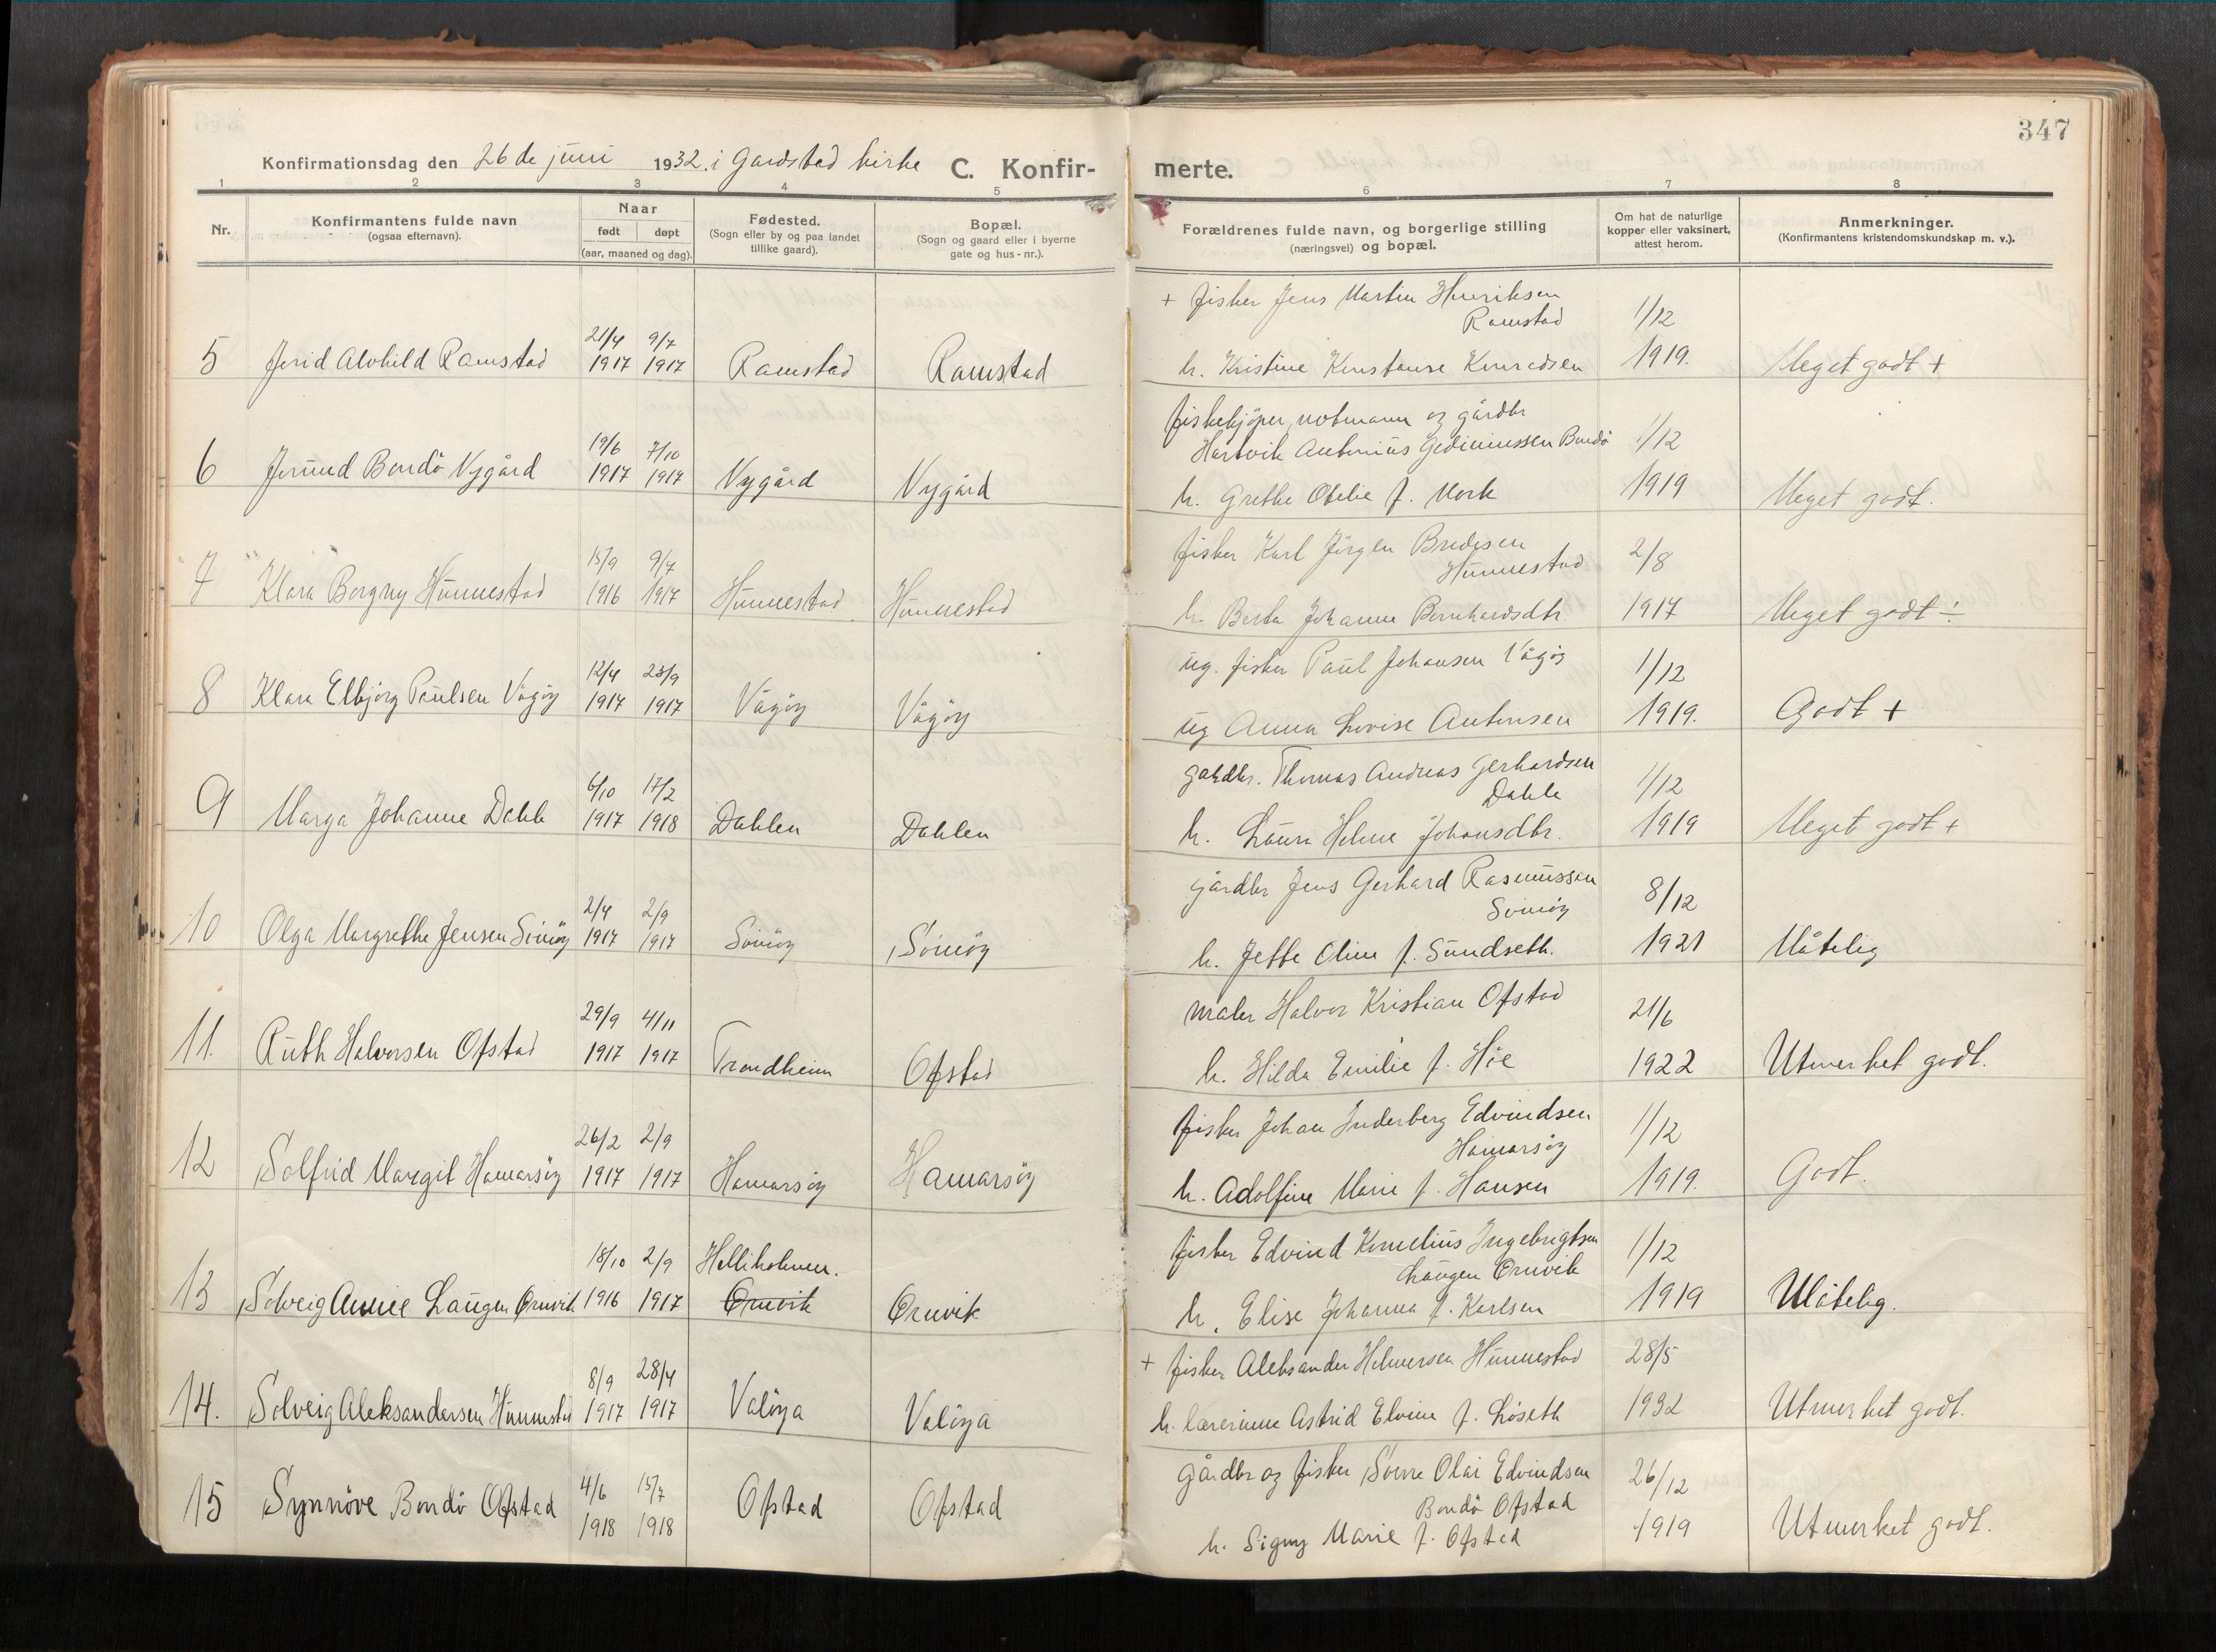 347
Konfirmationsdag den 26 de juni 1932. i Gardstad kirke C. Konfir- merte.
1 2 3 4 5 6 7 8
Nr. Konfirmantens fulde navn (ogsaa efternavn). Naar født døpt (aar, maaned og dag). Fødested. (Sogn eller by og paa landet tillike gaard). Bopæl. (Sogn og gaard eller i byerne gate og hus-nr.). Forældrenes fulde navn, og borgerlige stilling (næringsvei) og bopæl. Om hat de naturlige kopper eller vaksinert, attest herom. Anmerkninger. (Konfirmantens kristendomskundskap m. v.).
+ fisker Jens Martin Henriksen
21/4 9/7 Ramstad 1/12
5 Jerid Alvhild Ramstad 1917 1917 Ramstad Ramstad h. Kristine Konstanse Konradsen 1919. Meget godt +
fiskekjöper, notmann og gårdbr
19/6 7/10 Hartvik Antonius Gediminssen Bondö 1/12
6 Jorund Bondö Nygård 1917 1917 Nygård Nygård h. Grethe Otelie f. Mork 1919 Meget godt.
fisker Karl Jörgen Bredesen
15/9 9/7 Hunnestad 2/8
7 Klara Borgny Hunnestad 1916 1917 Hunnestad Hunnestad h. Berta Johanne Bernhardsdtr. 1917 Meget godt ÷
12/4 23/9 ug. fisker Paul Johansen Vågöy 1/12
8 Klara Elbjörg Paulsen Vågöy 1917 1917 Vågöy Vågöy ug Anna Lovise Antonsen 1919. Godt +
gardbr. Thomas Andreas Gerhardsen
6/10 17/2 Dahle 1/12
9 Marga Johanne Dahle 1917 1918 Dahlen Dahlen h. Laura Helene Johansdtr. 1919 Meget godt +
gårdbr Jens Gerhard Rasmussen
2/4 2/9 Svinöy 8/12
10 Olga Margrethe Jensen Svinöy 1917 1917 Svinöy Svinöy h. Jette Oline f. Sundseth. 1921 Måtelig
29/9 4/11 maler Halvor Kristian Ofstad 21/6
11. Ruth Halvorsen Ofstad 1917 1917 Trondheim Ofstad h. Hilda Emilie f. Höe 1922 Utmerket godt.
fisker Johan Inderberg Edvindsen
26/2 2/9 Hamarsöy 1/12
12 Solfrid Margit Hamarsöy 1917 1917 Hamarsöy Hamarsöy h. Adolfine Marie f. Hansen 1919. Godt.
fisker Edvind Kornelius Ingebrigtsen
18/10 2/9 Helliholmen. Laugen Ornvik 1/12
13 Solveig Annie Laugen Ornvik 1916 1917 Ornvik Ornvik h. Elise Johanna f. Karlsen 1919 Måtelig.
8/9 28/4 + fisker Aleksander Helmersen Hunnestad 28/5
14. Solveig Aleksandersen Hunnestad 1917 1917 Valöya Valöya h. lærerinne Astrid Elvine f. Löseth 1932 Utmerket godt.
gårdbr og fisker Sverre Olai Edvindsen
4/6 15/7 Bondö Ofstad 26/12
15 Synnöve Bondö Ofstad 1918 1918 Ofstad Ofstad h. Signy Marie f. Ofstad 1919 Utmerket godt.